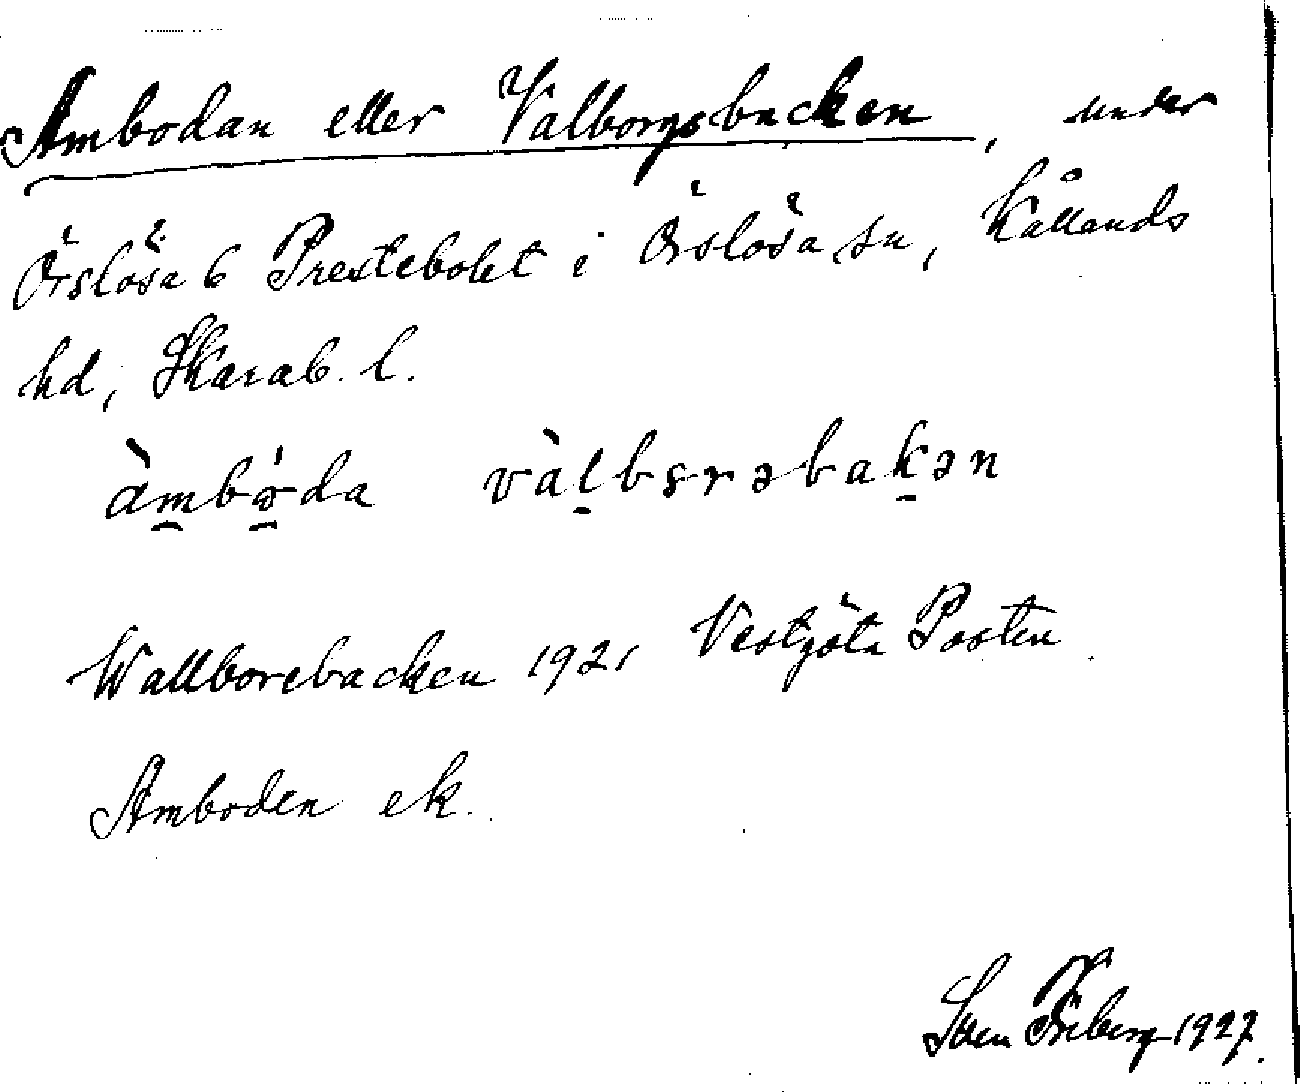 Ambodan eller Valborgsbacken, under
Örslösa 6 Prestebolet i Örslösa sn, Kållands
hd, Skarab. l.
àmbó̱da vàlbɛrəbakən
Wallborebacken 1921 Vestgöta Posten.
Amboden ek.
Sven Friberg 1927.